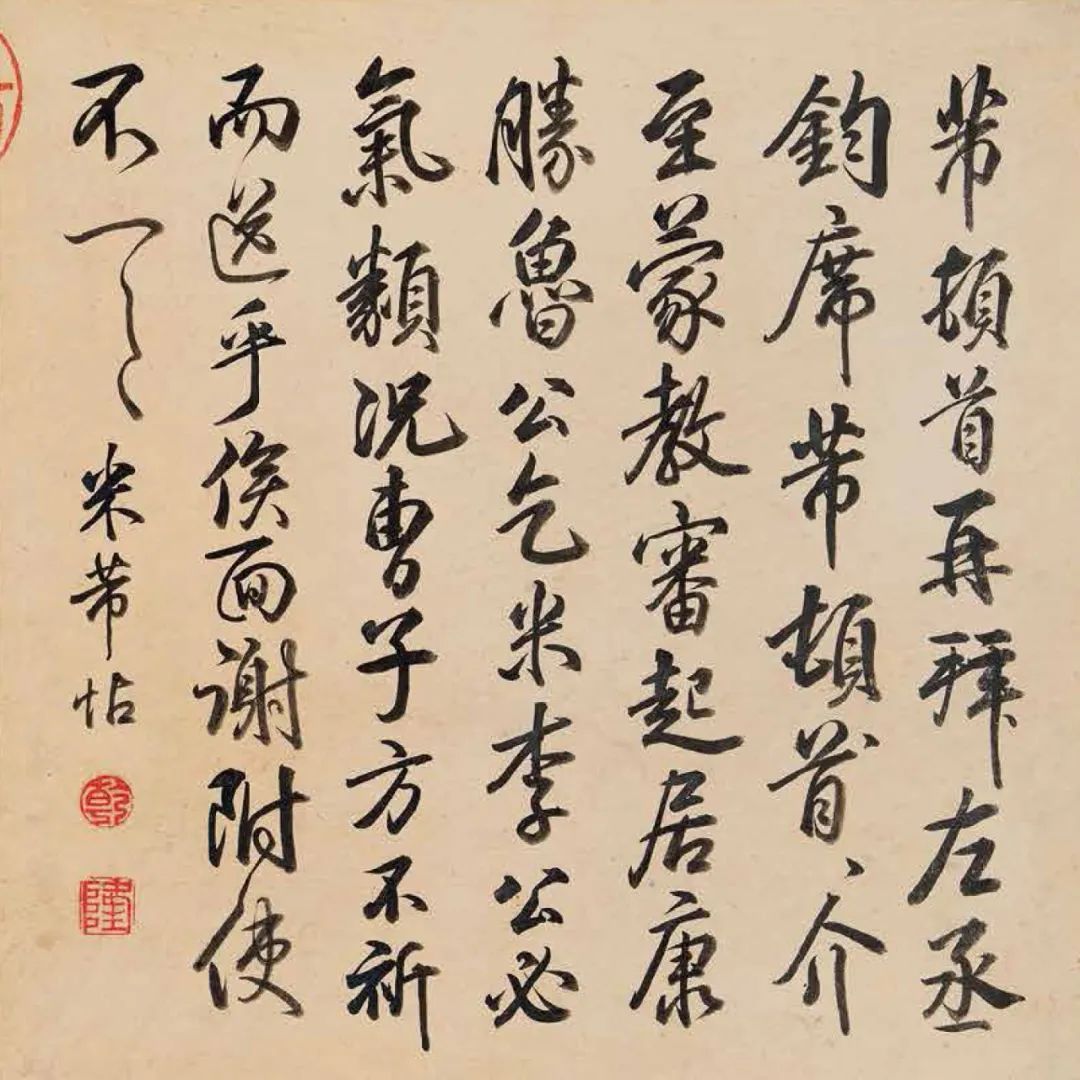 芾頓首再拜左丞
鈞席芾頓首、介
至蒙教審起居康
勝魯公乞米李公必
氣類況曹子方不祈
而送乎俟面謝附使
不一一、米芾帖
乾
隆